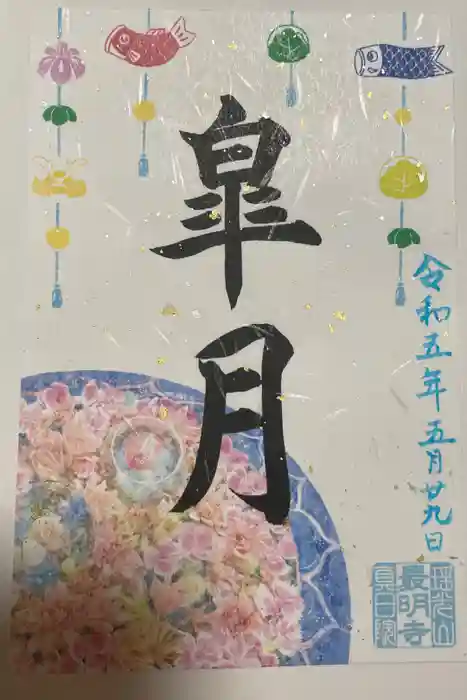 皐月
令和五年五月廿九日
長明寺